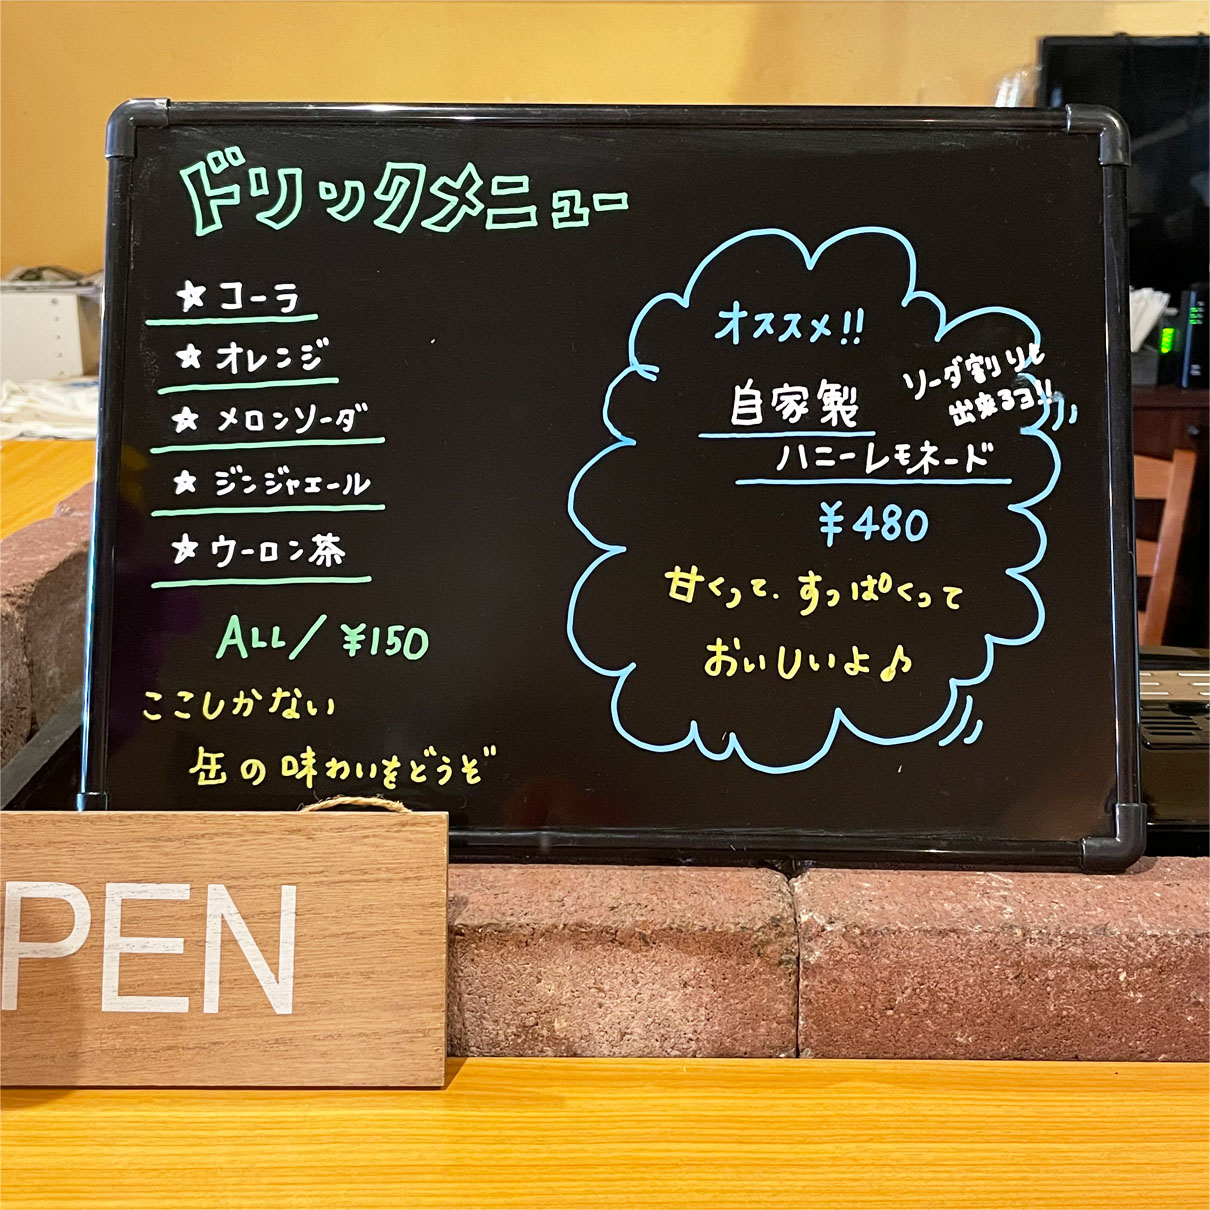 ドリンクメニュー
★コーラ
★オレンジ
★メロンソーダ
★ジンジャエール
★ウーロン茶
ALL/¥150
ここしかない
缶の味わいをどうぞ
オススメ!!
自家製
ハニーレモネード
ソーダ割りも
出来るヨ!!
¥480
甘くって、すっぱくって
おいしいよ♪
PEN